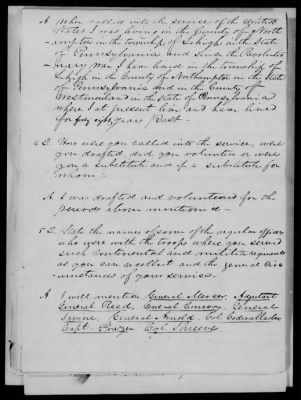 A When called into the service of the United
States I was living in the County of North
ampton in the township of Lehigh in the State
of Pennsylvania and since the Revolutio
nary War I have lived in the township of
Lehigh in the County of Northampton in the State
of Pennsylvania and in the County of
Westmoreland in the State of Pennsylvania
where I at present live and have lived
for forty eight years past.
How were you called into the service, were
you drafted did you volunteer or were
you a substitute and if a substitute for
whom
A I was drafted and volunteered for the
periods above mentioned
5 Q. State the names of some of the regular officers
who were with the troops where you served
such continental and militia regiments
as you can recollect and the general Circ
umstances of your service.
A I will mention General Mercer, Adjutant
General Reed, General Conway, General
Irvine, General Arnold, Col. Cadwallader
Capt. Frazer Col Shreeve